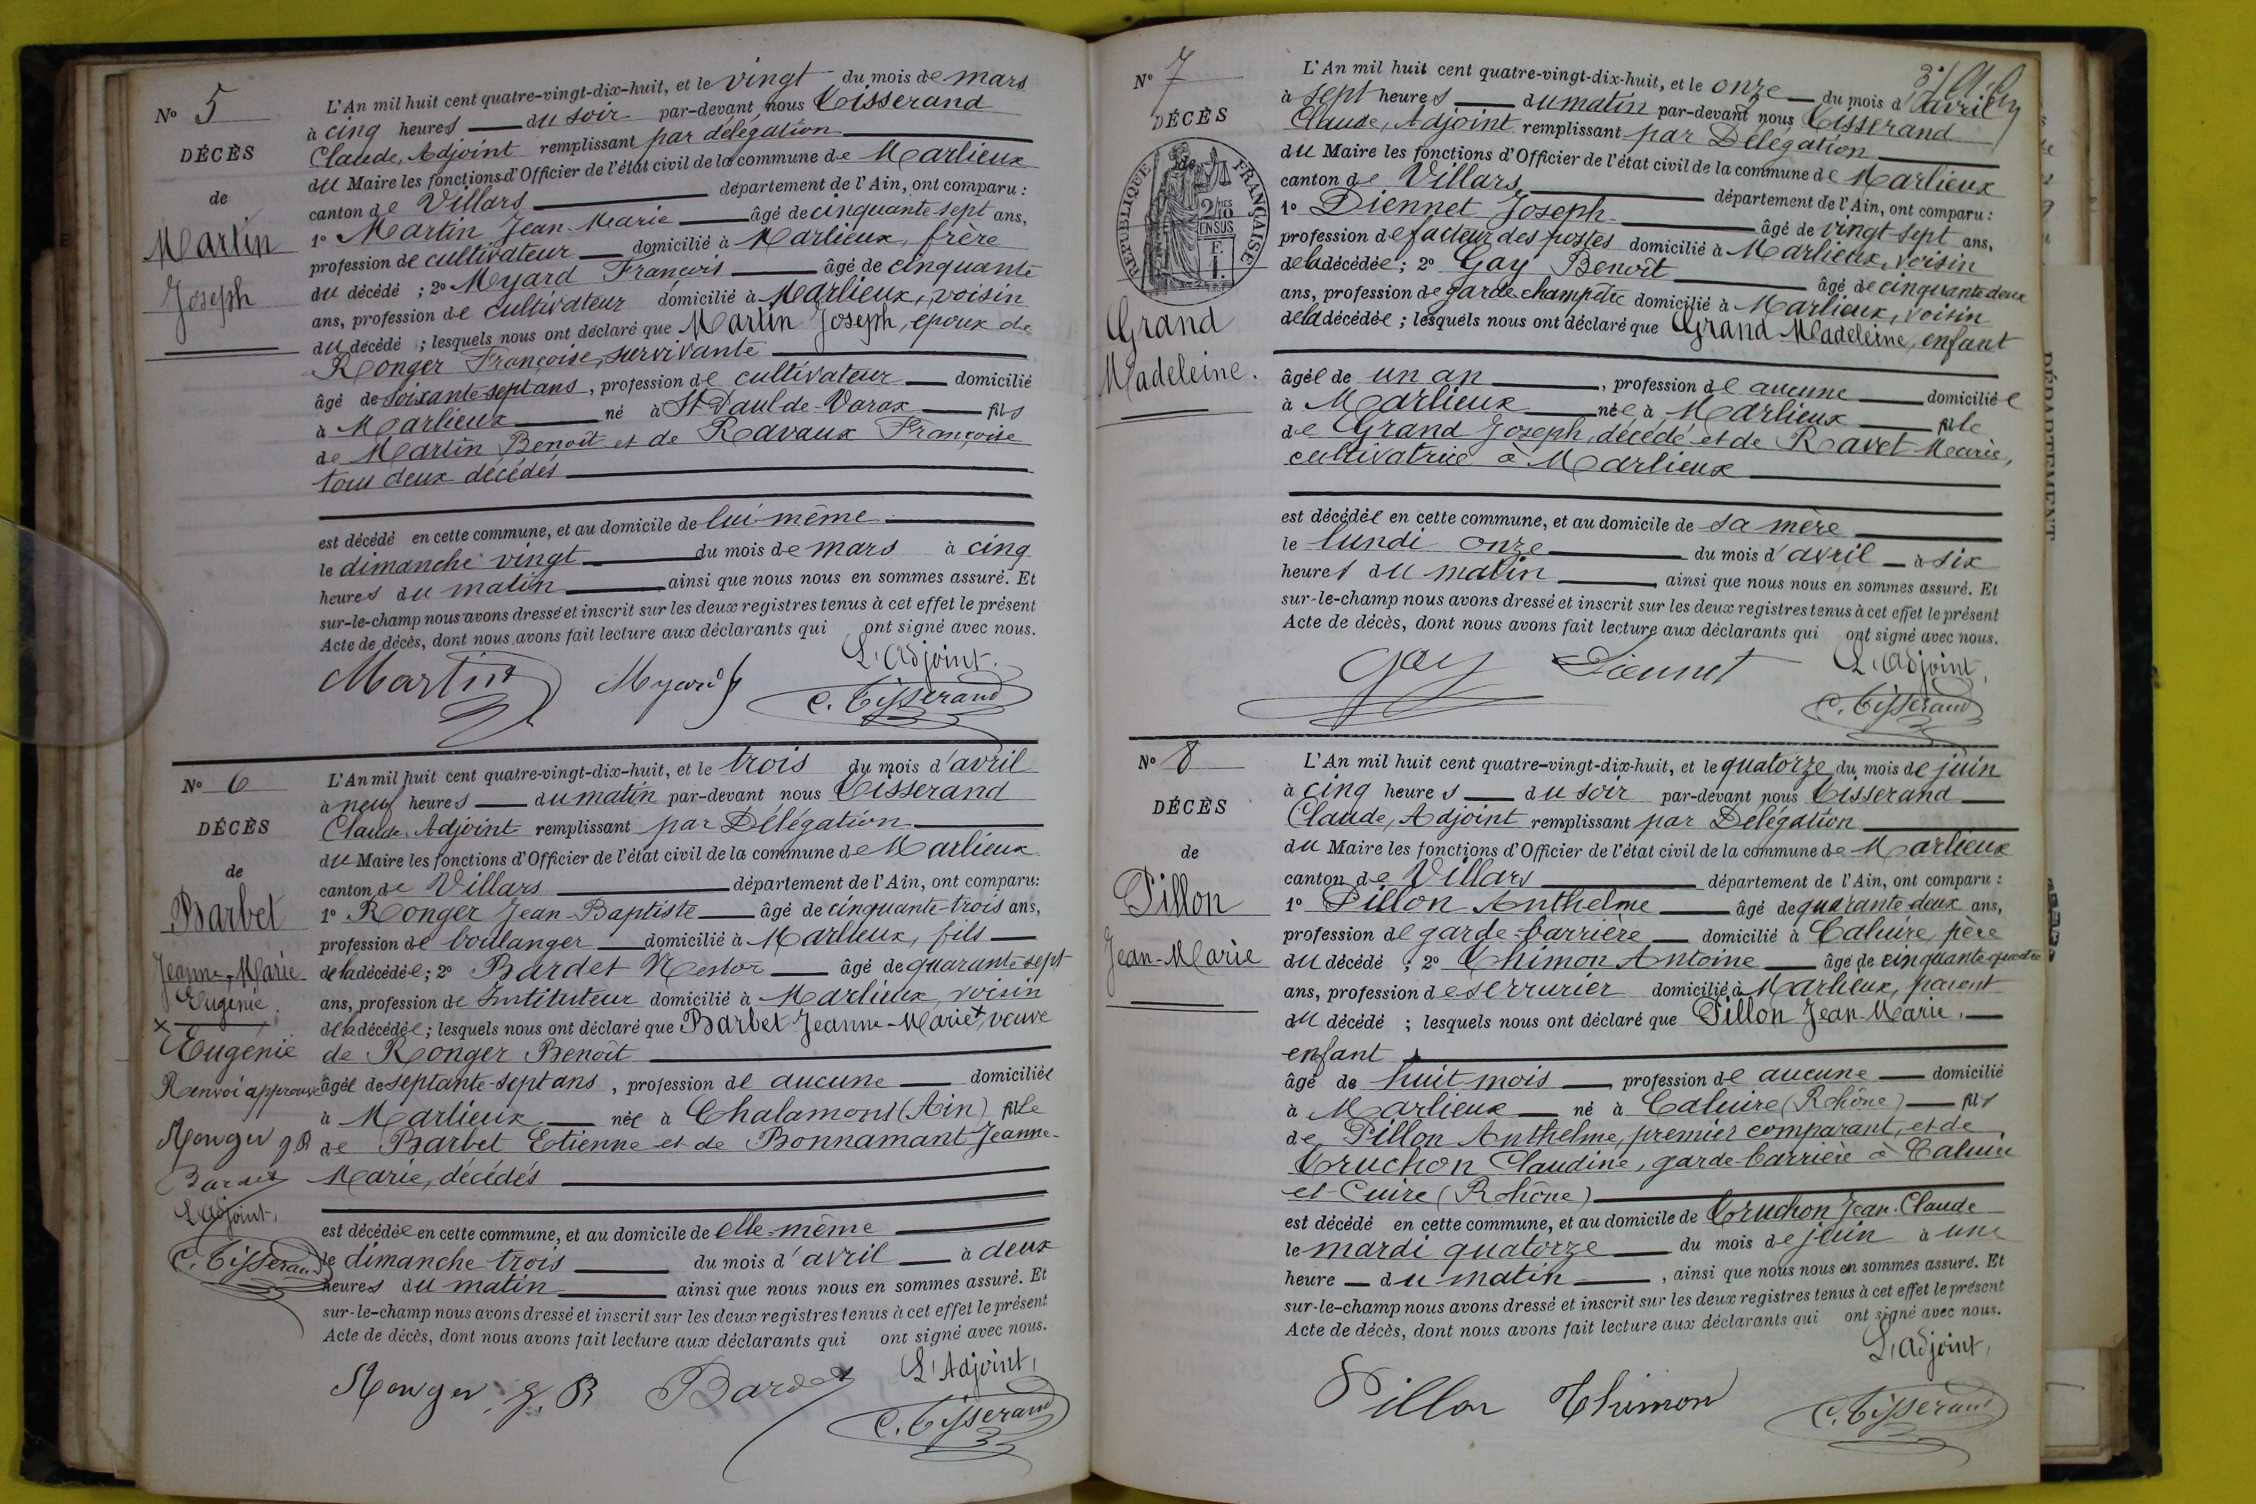 Nº 5
DÉCÈS
de
Martin
Joseph
L'An mil huit cent quatre-vingt-dix-huit, et le vingt du mois de mars
à cinq heures du soir par-devant nous Tisserand
Claude, Adjoint remplissant par délégation
du Maire les fonctions d'Officier de l'état civil de la commune de Marlieux
canton de Villars département de l'Ain, ont comparu :
1º Martin Jean-Marie âgé de cinquante-sept ans,
profession de cultivateur domicilié à Marlieux, frère
du décédé ; 2º Myard François âgé de cinquante
ans, profession de cultivateur domicilié à Marlieux, voisin
du décédé ; lesquels nous ont déclaré que Martin Joseph, époux de
Ronger Françoise, survivante
âgé de soixante-sept ans, profession de cultivateur domicilié
à Marlieux né à St Paul-de-Varax fils
de Martin Benoît et de Ravaux Françoise
tous deux décédés
est décédé en cette commune, et au domicile de lui-même
le dimanche vingt du mois de mars à cinq
heures du matin ainsi que nous nous en sommes assuré. Et
sur-le-champ nous avons dressé et inscrit sur les deux registres tenus à cet effet le présent
Acte de décès, dont nous avons fait lecture aux déclarants qui ont signé avec nous.
L'Adjoint.
Martin Myard C. Tisserand
Nº 6
DÉCÈS
de
Barbet
Jeanne-Marie
Eugénie.
x Eugénie
Renvoi approuvé
Ronger JB
Bardet
L'Adjoint,
C. Tisserand
L'An mil huit cent quatre-vingt-dix-huit, et le trois du mois d'avril
à neuf heures du matin par-devant nous Tisserand
Claude, Adjoint remplissant par Délégation
du Maire les fonctions d'Officier de l'état civil de la commune de Marlieux
canton de Villars département de l'Ain, ont comparu :
1º Ronger Jean-Baptiste âgé de cinquante-trois ans,
profession de boulanger domicilié à Marlieux, fils
de la décédée ; 2º Bardet Nestor âgé de quarante-sept
ans, profession de Instituteur domicilié à Marlieux, voisin
de la décédée ; lesquels nous ont déclaré que Barbet Jeanne-Marie x, veuve
de Ronger Benoît
âgée de septante-sept ans, profession de aucune domiciliée
à Marlieux née à Chalamont (Ain) fille
de Barbet Etienne et de Bonnamant Jeanne-
Marie, décédés
est décédée en cette commune, et au domicile de elle-même
le dimanche trois du mois d'avril à deux
heures du matin ainsi que nous nous en sommes assuré. Et
sur-le-champ nous avons dressé et inscrit sur les deux registres tenus à cet effet le présent
Acte de décès, dont nous avons fait lecture aux déclarants qui ont signé avec nous.
L'Adjoint,
Ronger J. B Bardet C. Tisserand
Nº 7
DÉCÈS
de
RÉPUBLIQUE FRANÇAISE
2/10 EN SUS
Grand
Madeleine.
L'An mil huit cent quatre-vingt-dix-huit, et le onze du mois d'avril
à sept heures du matin par-devant nous Tisserand
Claude, Adjoint remplissant par Délégation
du Maire les fonctions d'Officier de l'état civil de la commune de Marlieux
canton de Villars département de l'Ain, ont comparu :
1º Diennet Joseph âgé de vingt-sept ans,
profession de facteur des postes domicilié à Marlieux, voisin
de la décédée ; 2º Gay Benoît âgé de cinquante-deux
ans, profession de garde champêtre domicilié à Marlieux, voisin
de la décédée ; lesquels nous ont déclaré que Grand Madeleine, enfant
âgée de un an, profession de aucune domiciliée
à Marlieux née à Marlieux fille
de Grand Joseph, décédé et de Ravet Marie,
cultivatrice à Marlieux
est décédée en cette commune, et au domicile de sa mère
le lundi onze du mois d'avril à six
heures du matin, ainsi que nous nous en sommes assuré. Et
sur-le-champ nous avons dressé et inscrit sur les deux registres tenus à cet effet le présent
Acte de décès, dont nous avons fait lecture aux déclarants qui ont signé avec nous.
L'Adjoint,
Gay Diennet C. Tisserand
Nº 8
DÉCÈS
de
Pillon
Jean-Marie
L'An mil huit cent quatre-vingt-dix-huit, et le quatorze du mois de juin
à cinq heures du soir par-devant nous Tisserand
Claude, Adjoint remplissant par Délégation
du Maire les fonctions d'Officier de l'état civil de la commune de Marlieux
canton de Villars département de l'Ain, ont comparu :
1º Pillon Anthelme âgé de quarante-deux ans,
profession de garde-barrière domicilié à Caluire, père
du décédé ; 2º Thimon Antoine âgé de cinquante-quatre
ans, profession de serrurier domicilié à Marlieux, parent
du décédé ; lesquels nous ont déclaré que Pillon Jean-Marie,
enfant
âgé de huit mois, profession de aucune domicilié
à Marlieux né à Caluire (Rhône) fils
de Pillon Anthelme, premier comparant, et de
Cruchon Claudine, garde-barrière à Caluire
et-Cuire (Rhône)
est décédé en cette commune, et au domicile de Cruchon Jean-Claude
le mardi quatorze du mois de juin à une
heure du matin, ainsi que nous nous en sommes assuré. Et
sur-le-champ nous avons dressé et inscrit sur les deux registres tenus à cet effet le présent
Acte de décès, dont nous avons fait lecture aux déclarants qui ont signé avec nous.
L'Adjoint,
Pillon Thimon C. Tisserand
DÉPARTEMENT